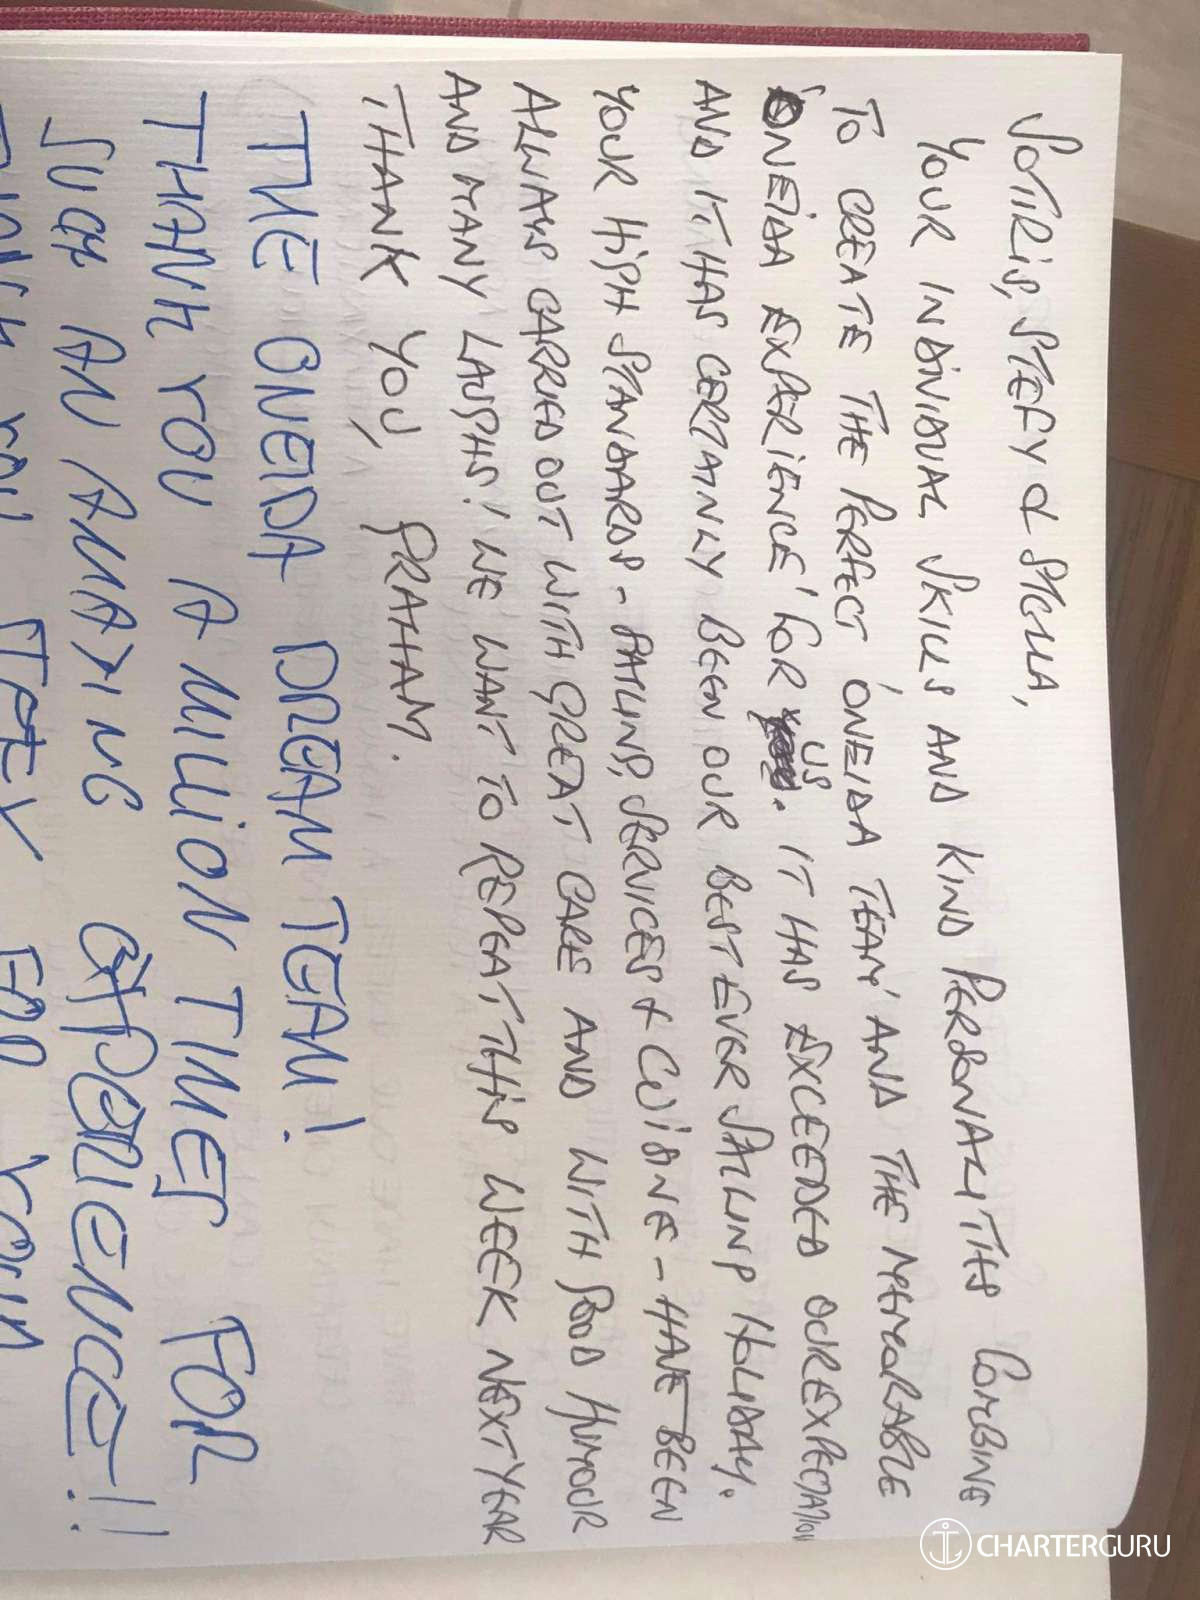 SOTIRIS, STEFY & STELLA,
YOUR INDIVIDUAL SKILLS AND KIND PERSONALITIES COMBINE
TO CREATE THE PERFECT 'ONEIDA TEAM' AND THE MEMORABLE
'ONEIDA EXPERIENCE' FOR US. IT HAS EXCEEDED OUR EXPECTATION
AND IT HAS CERTAINLY BEEN OUR BEST EVER SAILING HOLIDAY.
YOUR HIGH STANDARDS - SAILING, SERVICES & CUISINE - HAVE BEEN
ALWAYS CARRIED OUT WITH GREAT CARE AND WITH GOOD HUMOUR
AND MANY LAUGHS! WE WANT TO REPEAT THIS WEEK NEXT YEAR
THANK YOU, GRAHAM.
THE ONEIDA DREAM TEAM!
THANK YOU A MILLION TIMES FOR
SUCH AN AMAZING EXPERIENCE!!
THANK YOU STEFY FOR YOUR
CHARTERGURU